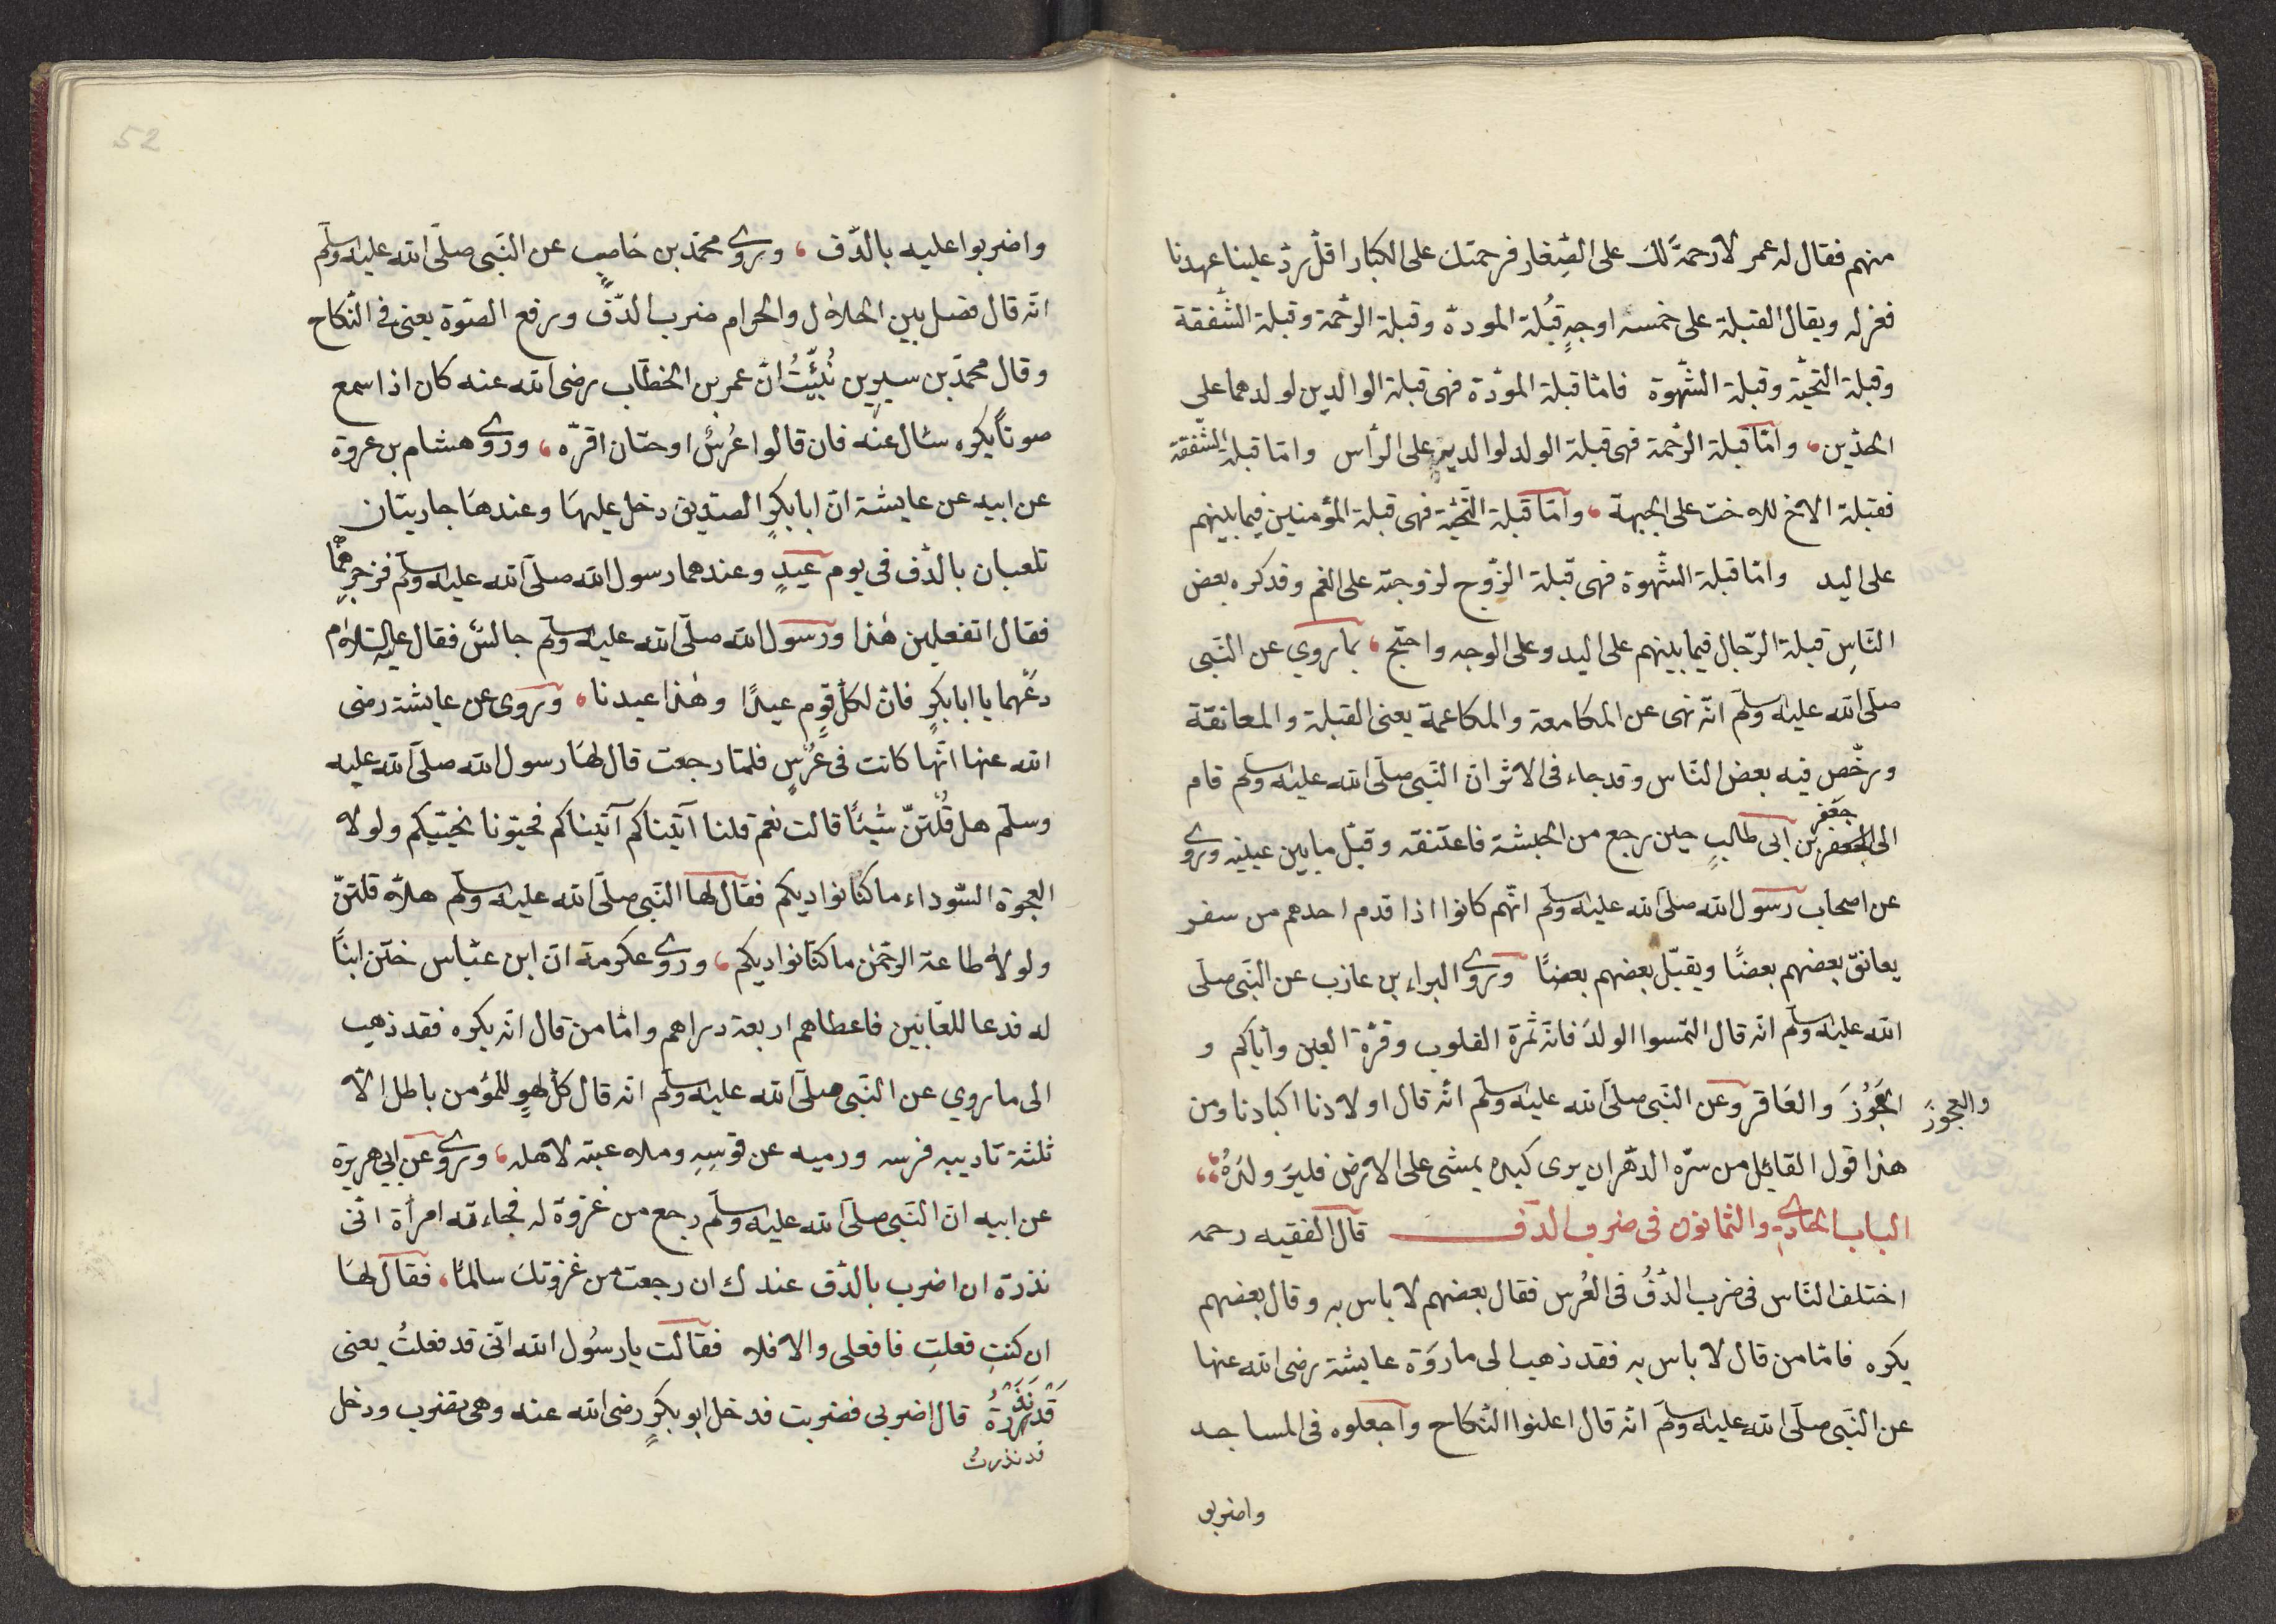 منهم فقال له عمر لا رحمة لك على الصّغار فرحمتك على الكبار اقلّ ردّ علينا عهدنا
فعزله ويقال القبلة على خمسه اوجهٍ قُبلة المودة وقبلة الرحّمة وقبلة الشّفقة
وقبلة التّحيّة وقبلة الشّهوة فامّا قبلة المودّة فهى قبلة الوالدين لولدهما على
الخدّين، وامّا قبلة الرّحمة فهى قبلة الولد لوالديهِ على الرأس وامّا قبلة الشّفقة
فقبلة الاخ للاخت على الجبهة، وامّا قبلة التّحيّة فهى قبلة المؤمنين فيما بينهم
على اليد وامّا قبلة الشّهوة فهى قبلة الزّوج لزوجته على الفم وقد كره بعض
النّاسِ قبلة الرّجال فيما بينهم على اليد وعلى الوجه واحتجّ، بما روي عن النّبى
صلّى الله عليه وسلّم انّه نهى عن المكامعة والمكاعمة يعنى القبلة والمعانقة
ورخّص فيه بعض النّاس وقد جاء فى الاثر ان النّبى صلّى الله عليه وسلّم قام
الى جعفر بن ابى طالبٍ حين رجع من الحبشة فاعتنقه وقبّل مابين عينيه وروى
عن اصحاب رسول الله صلّى الله عليه وسلّم انّهم كانوا اذا قدم احدهم من سفر
يعانق بعضهم بعضًا ويقبّل بعضهم بعضًا وروى البراء بن عازب عن النّبى صلّى
الله عليه وسلّم انّه قال التمسوا الولدَ فانّه ثمرة القلوب وقرّة العين وايّاكم و
العَجُوْزَ والعَاقر وعن النّبى صلّى الله عليه وسلّم انّه قال اولادنا اكبادنا ومن
والعجوزَ
هذا قول القايل من سرّه الدّهر ان يرى كبده يمشى على الارض فليرَ ولدَهُ
الباب الحادى والثمانون فى ضرب الدّف قال الفقيه رحمه
اختلف النّاس فى ضرب الدّفُ فى العُرس فقال بعضهم لا باس به وقال بعضهم
يكره فامّا من قال لا باس به فقد ذهب الى ما روَة عايشة رضى الله عنها
عن النّبى صلّى الله عليه وسلّم انّه قال اعلنوا النّكاح واجعلوه فى المساجد
واضربو
52
واضربوا عليه بالدّف، وروى محمّد بن خاصبٍ عن النّبى صلّى الله عليه وسلّم
انّه قال فصل بين الحلال والحرام ضرب الدّفّ ورفع الصّوة يعنى فى النّكاح
وقال محمّد بن سيرين نُبّئتُ انّ عمر بن الخطّاب رضى الله عنه كان اذا سمع
صوتاً يكره سئال عنه فان قالوا عُرسٌ او ختان اقرّه، وروى هشام بن عروة
عن ابيه عن عايشة انّ ابا بكرٍ الصّديق دخل عليهَا وعندهَا جاريتان
تلعبان بالدّف فى يوم عيدٍ وعندهما رسول الله صلّى الله عليه وسلّم فزجرهما
فقال اتفعلين هٰذا ورسول الله صلّى الله عليه وسلّم جالسٌ فقال عليه السّلام
دعْهما يا ابا بكرٍ فانّ لكلّ قومٍ عيدًا وهٰذا عيدنا، وروى عن عايشة رضى
الله عنها انّها كانت فى عُرْسٍ فلمّا رجعت قال لهَا رسول الله صلّى الله عليه
وسلّم هل قُلتنّ شيئًا قالت نعم قلنا آتيناكم آتيناكم فحيّونا نحيّيكم ولولا
العجوة السّوداء ما كنّا نواديكم فقال لها النّبى صلّى الله عليه وسلّم هلّا قلتنّ
ولولا طاعة الرّحمٰن ما كنّا نواديكم، وروى عكرمة انّ ابن عبّاس ختن ابنًا
له فدعا للعّابين فاعطاهم اربعة دراهم وامّا من قال انّه يكره فقد ذهب
الى ما روي عن النّبى صلّى الله عليه وسلّم انّه قال كلّ لهوٍ للمؤمن باطل الّا
ثلثة تاديبه فرسه ورميه عن قوسِهِ وملاعبته لاهله، وروى عن ابي هريرة
عن ابيه ان النّبى صلّى الله عليه وسلّم رجع من غزوة له فجاءته امرأة انّى
نذرة ان اضرب بالدّف عندك ان رجعت من غزوتك سالمًا، فقال لهَا
ان كنتِ فعلتِ فافعلى والا فلا فقالت يا رسُول الله انّى قد فعلتُ يعنى
قَدْ نَذَرْةُ قال اضربى فضربت فدخل ابو بكرٍ رضى الله عنه وهى تضرب ودخل
قد نذرتُ